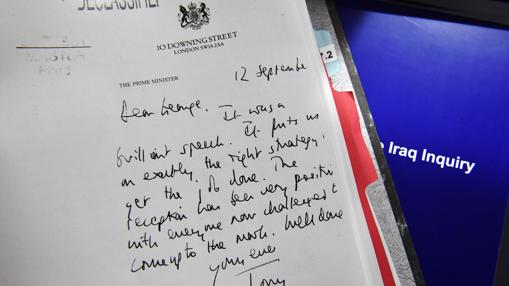 DECLASSIFIED
10 DOWNING STREET
LONDON SW1A 2AA
THE PRIME MINISTER
12 Septembe
Dear George,
It was a
brilliant speech. It puts us
on exactly the right strategy to
get the job done. The
reception has been very positive
with everyone now challenged to
come up to the mark. Well done
yours ever
Tony
7.2
Iraq Inquiry